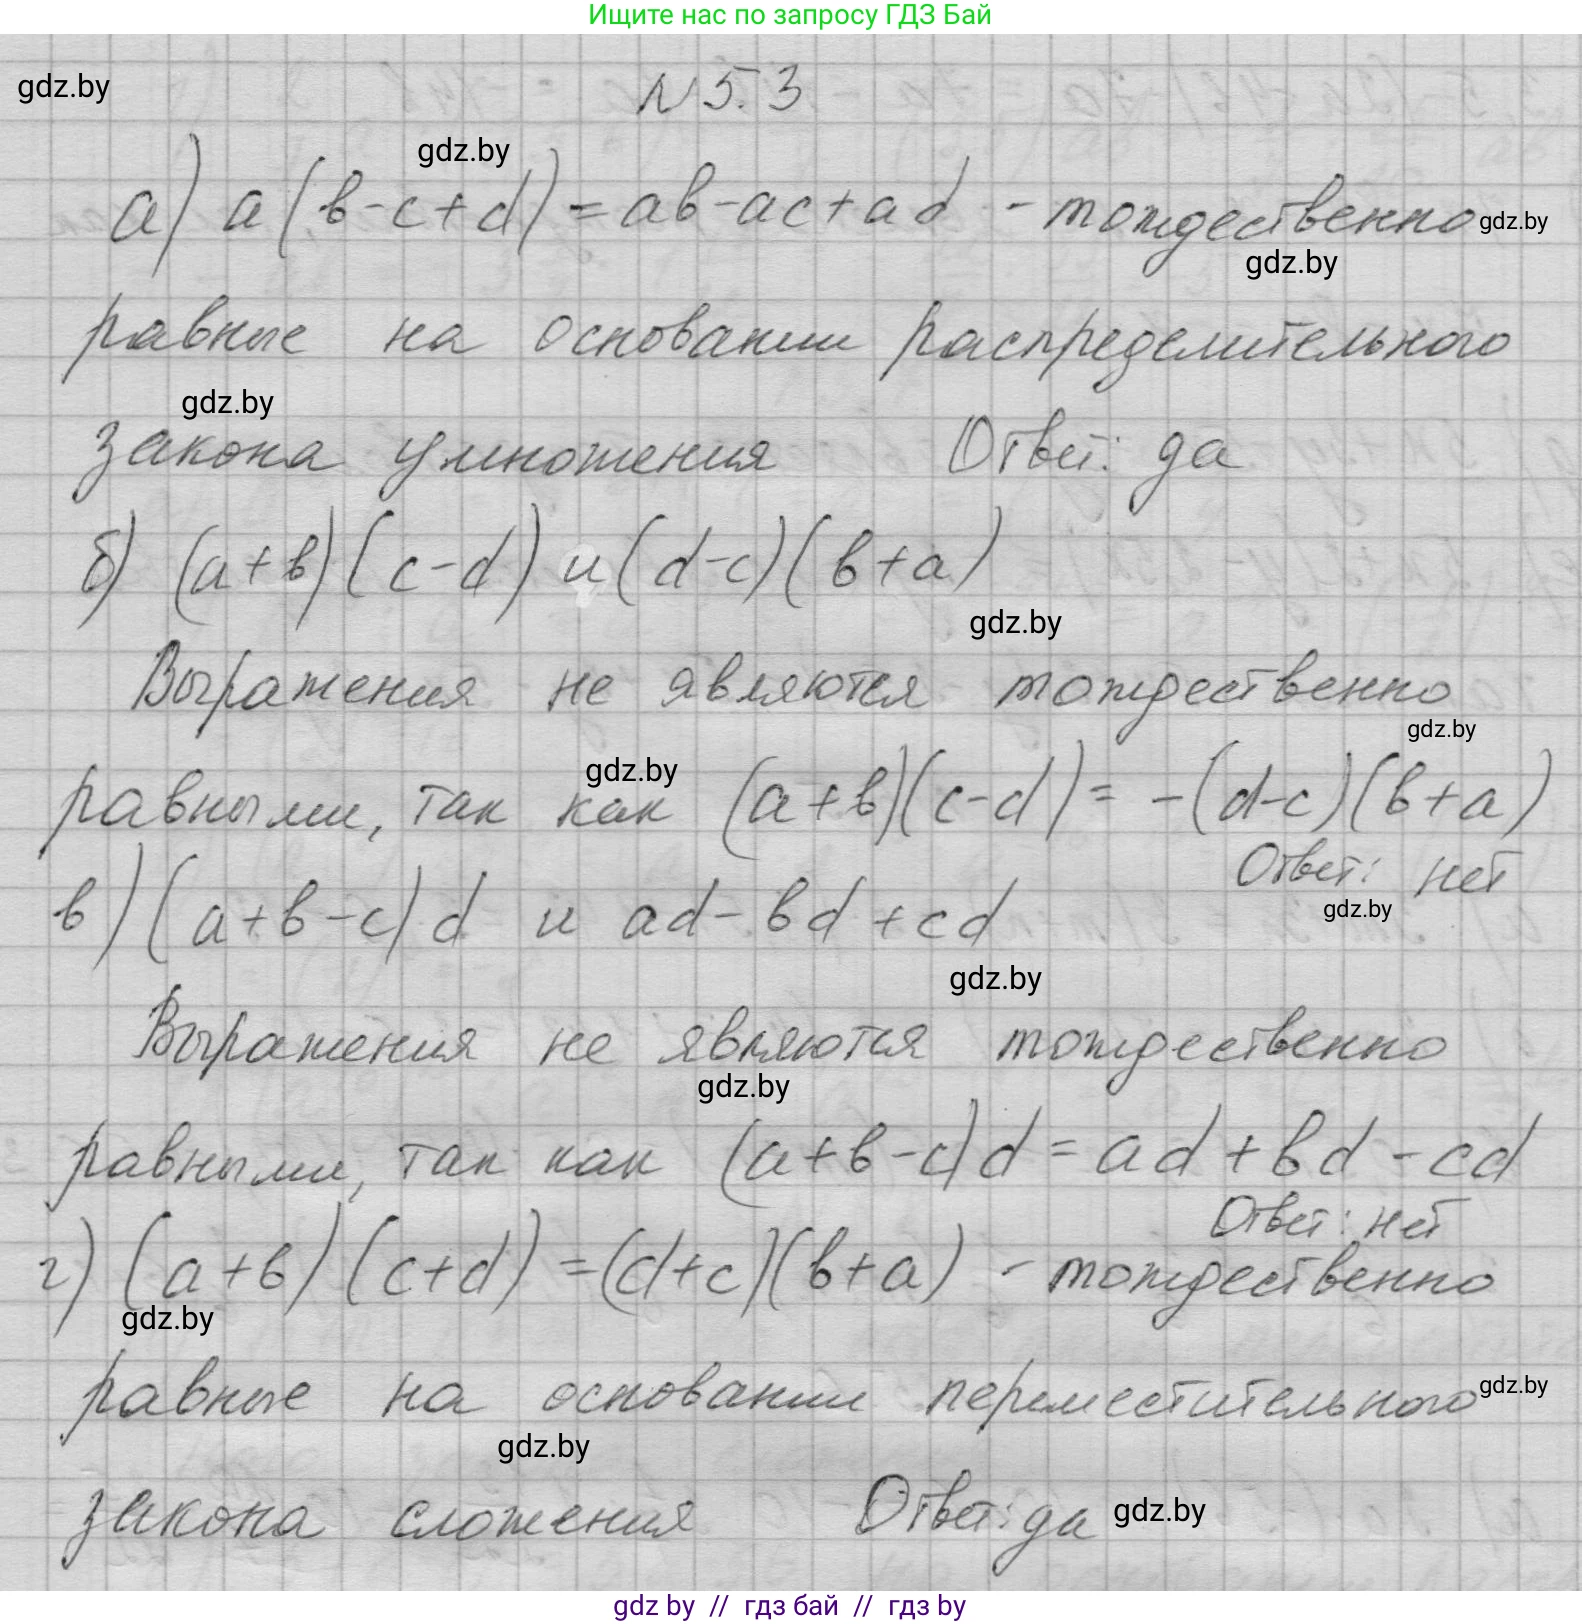 Ищите нас по запросу ГДЗ Бай
gdz.by
N 5.3
gdz.by
а) a(b-c+d)=ab-ac+ad - тождественно gdz.by
gdz.by
равные на основании распределительного
gdz.by
закона умножения Ответ: да
б) (a+b)(c-d) и (d-c)(b+a)
gdz.by
Выражения не являются тождественно
gdz.by
gdz.by
равными, так как (a+b)(c-d)= -(d-c)(b+a)
Ответ: нет
gdz.by
в) (a+b-c)d и ad-bd+cd
gdz.by
Выражения не являются тождественно
gdz.by
равными, так как (a+b-c)d=ad+bd-cd
Ответ: нет
г) (a+b)(c+d)=(d+c)(b+a) - тождественно
gdz.by
равные на основании переместительного gdz.by
gdz.by
закона сложения Ответ: да gdz.by
gdz by // гдз бай // гдз by